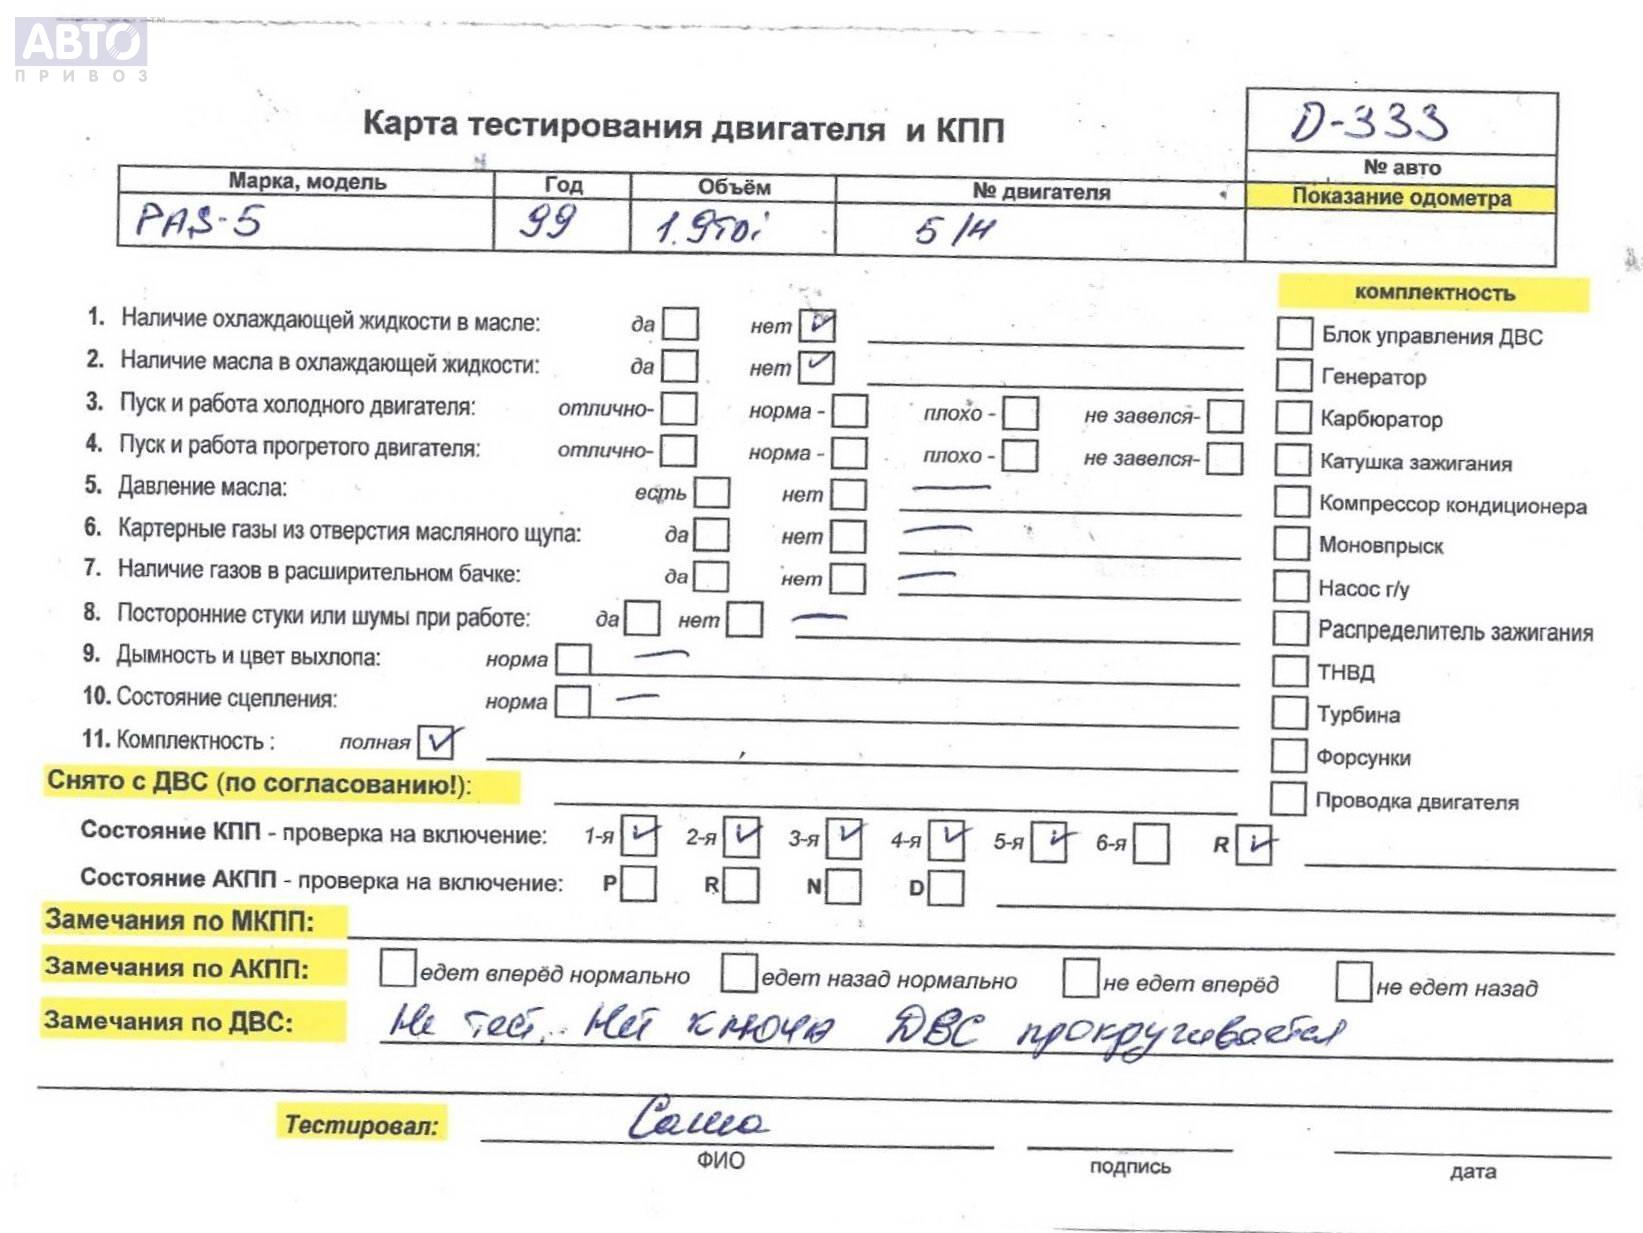 АВТО
ПРИВОЗ
Карта тестирования двигателя и КПП
D-333
№ авто
Марка, модель Год Объём № двигателя Показание одометра
PAS-5 99 1.9TDi Б/Н
комплектность
1. Наличие охлаждающей жидкости в масле: да нет
Блок управления ДВС
2. Наличие масла в охлаждающей жидкости: да нет
Генератор
3. Пуск и работа холодного двигателя: отлично- норма - плохо - не завелся-
Карбюратор
4. Пуск и работа прогретого двигателя: отлично- норма - плохо - не завелся-
Катушка зажигания
5. Давление масла: есть нет
Компрессор кондиционера
6. Картерные газы из отверстия масляного щупа: да нет
Моновпрыск
7. Наличие газов в расширительном бачке: да нет
Насос г/у
8. Посторонние стуки или шумы при работе: да нет
Распределитель зажигания
9. Дымность и цвет выхлопа: норма
ТНВД
10. Состояние сцепления: норма
Турбина
11. Комплектность : полная
Форсунки
Снято с ДВС (по согласованию!):
Проводка двигателя
Состояние КПП - проверка на включение: 1-я 2-я 3-я 4-я 5-я 6-я R
Состояние АКПП - проверка на включение: P R N D
Замечания по МКПП:
Замечания по АКПП: едет вперёд нормально едет назад нормально не едет вперёд не едет назад
Замечания по ДВС: Не тест. Нет ключа ДВС прокручивается
Тестировал: Саша
ФИО подпись дата